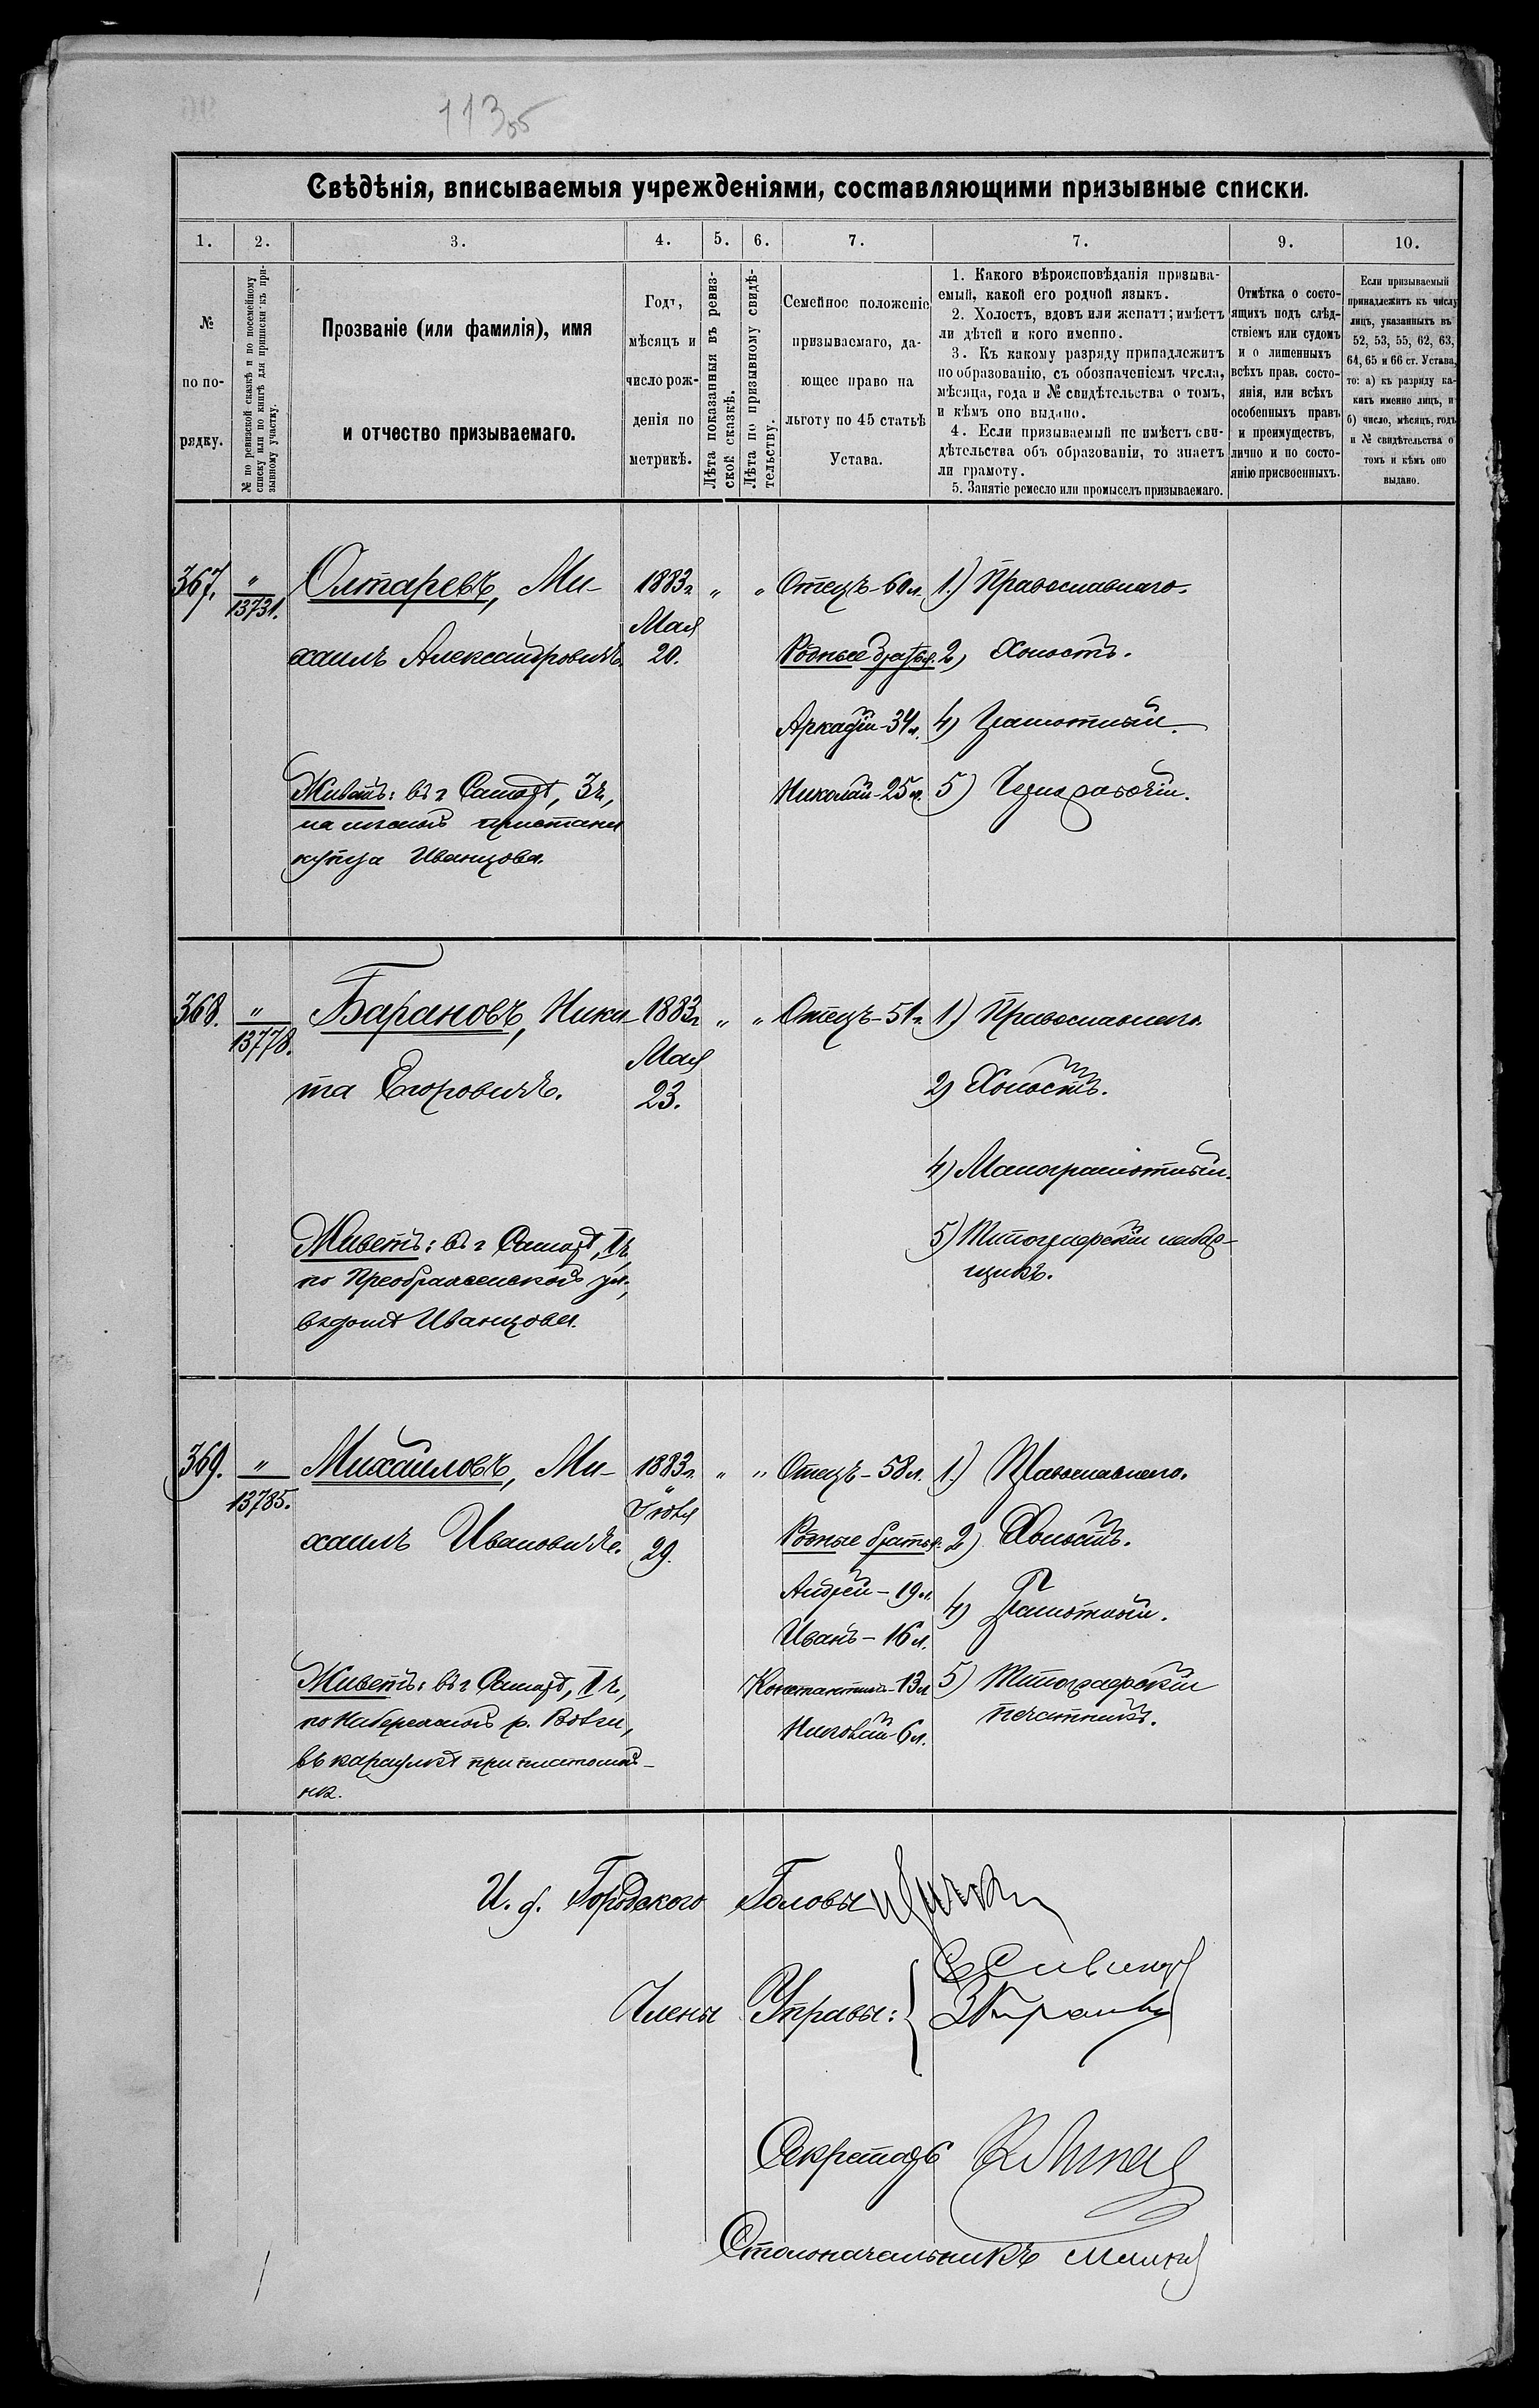 113об
Свѣдѣнія, вписываемыя учрежденіями, составляющими призывные списки.
1. 2. 3. 4. 5. 6. 7. 7. 9. 10.
№
по по-
рядку.
№ по ревизской сказкѣ и по посемейному
списку или по книгѣ для приписки къ при-
зывному участку.
Прозваніе (или фамилія), имя
и отчество призываемаго.
Годъ,
мѣсяцъ и
число рож-
денія по
метрикѣ.
Лѣта показанныя въ ревиз-
ской сказкѣ.
Лѣта по призывному свидѣ-
тельству.
Семейное положеніе
призываемаго, да-
ющее право на
льготу по 45 статьѣ
Устава.
1. Какого вѣроисповѣданія призыва-
емый, какой его родной языкъ.
2. Холостъ, вдовъ или женатъ; имѣетъ
ли дѣтей и кого именно.
3. Къ какому разряду принадлежитъ
по образованію, съ обозначеніемъ числа,
мѣсяца, года и № свидѣтельства о томъ,
и кѣмъ оно выдано.
4. Если призываемый не имѣетъ сви-
дѣтельства объ образованіи, то знаетъ
ли грамоту.
5. Занятіе ремесло или промыселъ призываемаго.
Отмѣтка о состо-
ящихъ подъ слѣд-
ствіемъ или судомъ
и о лишенныхъ
всѣхъ прав. состо-
янія, или всѣхъ
особенныхъ правъ
и преимуществъ,
лично и по состо-
янію присвоенныхъ.
Если призываемый
принадлежитъ къ числу
лицъ, указанныхъ въ
52, 53, 55, 62, 63,
64, 65 и 66 ст. Устава,
то: а) къ разряду ка-
кихъ именно лицъ, и
б) число, мѣсяцъ, годъ
и № свидѣтельства о
томъ и кѣмъ оно
выдано.
367.
"
13731.
Олтаревъ, Ми-
хаилъ Александровичъ.
Живетъ: въ г. Самарѣ, 3 ч.,
на лѣсной пристани
купца Иванцова.
1883 г.
Мая
20.
" "
Отецъ-60 л.
Родные братья:
Аркадій-34 л.
Николай-25 л.
1.) Православнаго.
2) Холостъ.
4) Грамотный.
5) Чернорабочій.
368.
"
13778.
Барановъ, Ники-
та Егоровичъ.
Живетъ: въ г. Самарѣ, I ч.,
по Преображенской ул.,
въ домѣ Иванцова.
1883 г.
Мая
23.
" "
Отецъ-51 г.
1) Православнаго.
2) Холостъ.
4) Малограмотный.
5) Типографскій набор-
щикъ.
369.
"
13785.
Михайловъ, Ми-
хаилъ Ивановичъ.
Живетъ: въ г. Самарѣ, I ч.,
по Набережной р. Волги,
въ караулкѣ при
1883 г.
Іюля
29.
" "
Отецъ-58 л.
Родные братья:
Андрей-19 л.
Иванъ-16 л.
Константинъ-13 л.
Николай-6 л.
1.) Православнаго.
2) Холостъ.
4) Грамотный.
5) Типографскій
печатникъ.
И. д. Городского Головы
Члены Управы:
Секретарь
Столоначальникъ